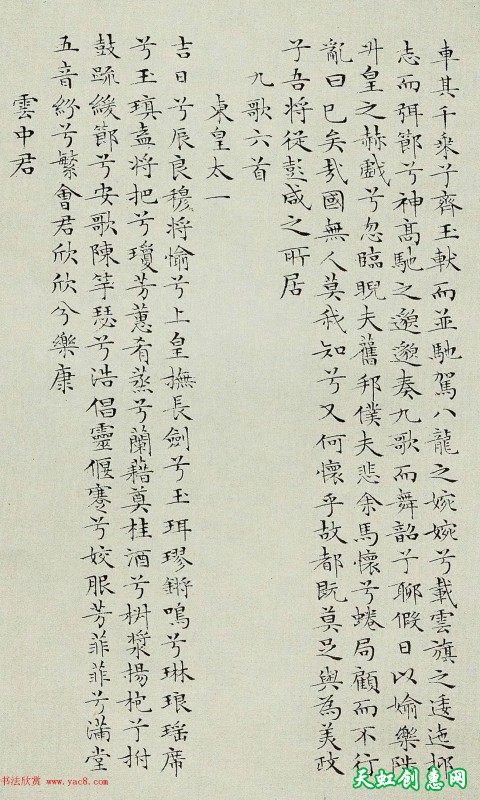 車其千乘兮齊玉軑而並馳駕八龍之婉婉兮載雲旗之逶迤抑
志而弭節兮神高馳之邈邈奏九歌而舞韶兮聊假日以媮樂陟
升皇之赫戲兮忽臨睨夫舊邦僕夫悲余馬懷兮蜷局顧而不行
亂曰已矣哉國無人莫我知兮又何懷乎故都既莫足與為美政
兮吾將從彭咸之所居
九歌六首
東皇太一
吉日兮辰良穆將愉兮上皇撫長劍兮玉珥璆鏘鳴兮琳琅瑶席
兮玉瑱盍將把兮瓊芳蕙肴蒸兮蘭藉奠桂酒兮椒漿揚枹兮拊
鼓疏緩節兮安歌陳竽瑟兮浩倡靈偃蹇兮姣服芳菲菲兮滿堂
五音紛兮繁會君欣欣兮樂康
雲中君
书法欣赏 www.yac8.com
天虹创惠网